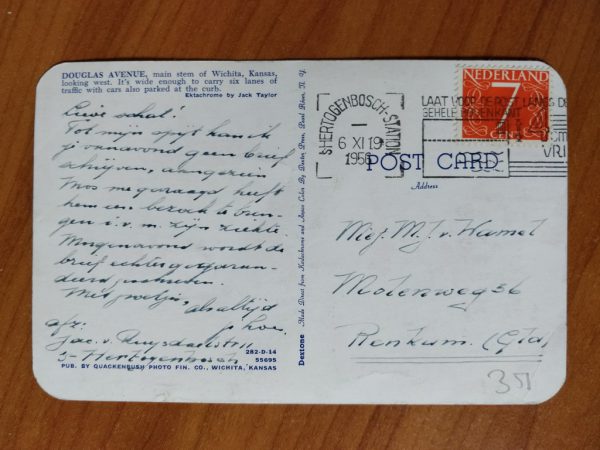 DOUGLAS AVENUE, main stem of Wichita, Kansas,
looking west. It's wide enough to carry six lanes of
traffic with cars also parked at the curb.
Ektachrome by Jack Taylor
Lieve schat!
Tot mijn spijt kan ik
je vanavond geen brief
schrijven, aangezien
me gevraagd heeft
hem een bezoek te bren-
gen i.v.m. zijn ziekte.
Morgenavond wordt de
brief echter gegaran-
deerd
als altijd
afz:
Jac. v. Ruysdaelstr
s-Hertogenbosch
282-D-14
55695
PUB. BY QUACKENBUSH PHOTO FIN. CO., WICHITA, KANSAS
Dextone Made Direct from Kodachrome and Ansco Color By Dexter Press, Pearl River, N. Y.
NEDERLAND
7
CENT
'S HERTOGENBOSCH-STATION
6 XI 19
1956
LAAT VOOR DE POST LANGS DE
GEHELE BOVENKANT
VRI
POST CARD
Address
Mej. M. J. v.
Molenweg 36
Renkum. (Gld)